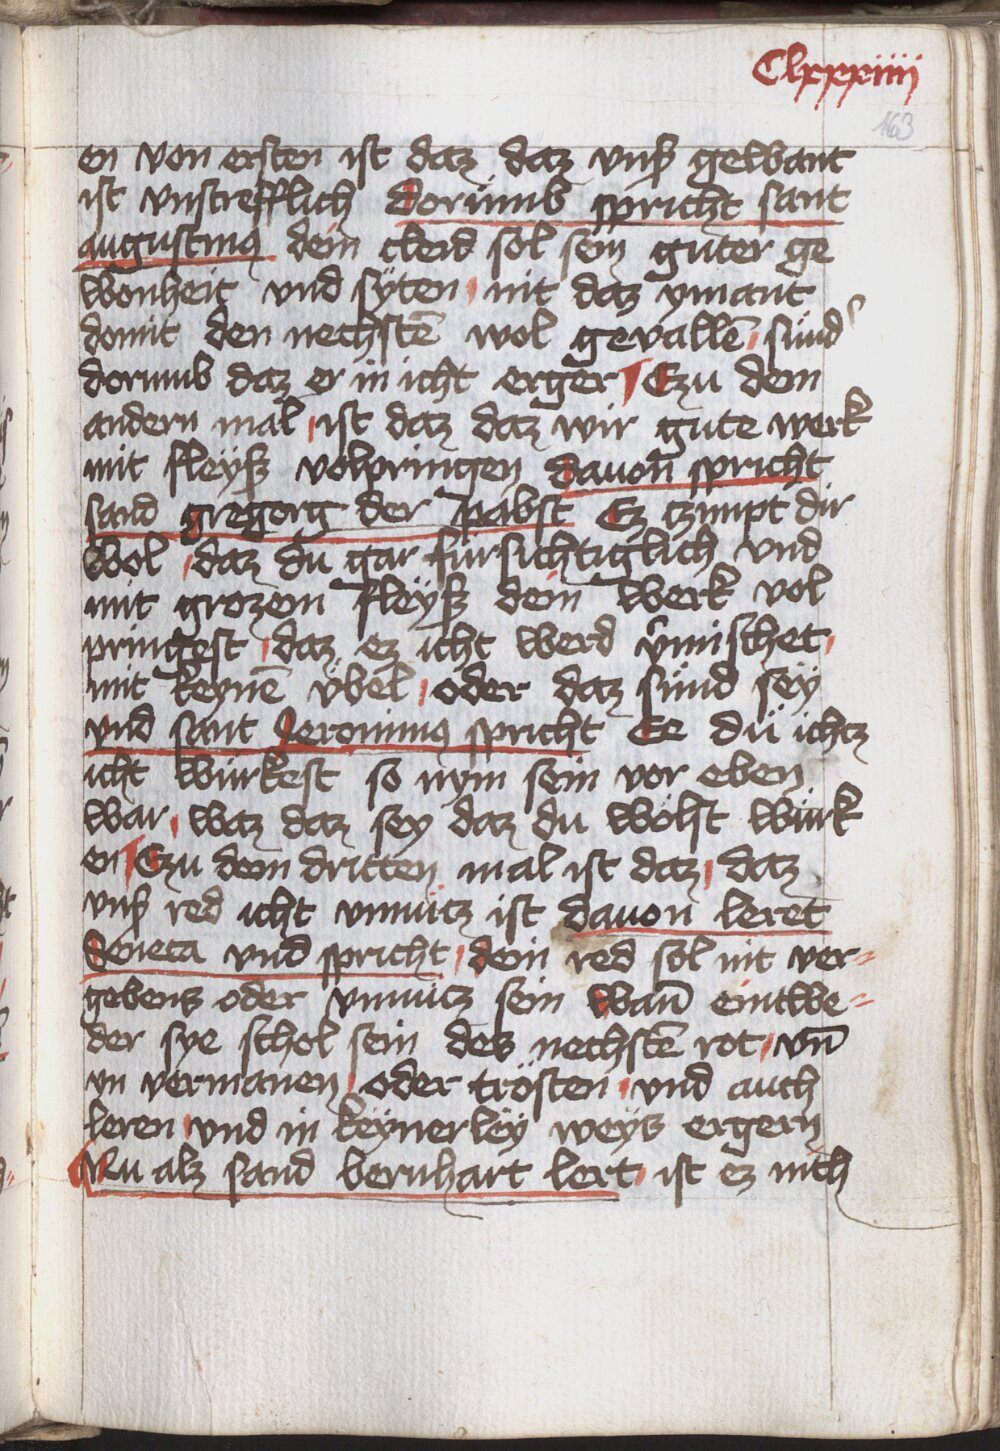 Clxxxiiii
163
en von ersten ist daz daz vnß gewant
ist vnstrefflich dorümb spricht sant
augustinus dein cleid sol sein guter ge
wonheit vnd syten nit daz ymant
domit den nechstē wol gevallē sünd᾽
dorumb daz er in icht erger Czu dem
andern mal ist daz daz wir gute werk
mit fleyß volpringen dauon spricht
sand gregorg der pabst Ez czimpt dir
wol daz du gar fürsichtiglich vnd
mit grozem fleyß dein werk vol
pringest daz ez icht werd v̂mischet
mit keynē vbel oder daz sünd sey
vnd sant Jeronimus spricht Ee du ichtz
icht würkest so nym sein vor eben
war waz daz sey daz du wölst würk
en Czu dem dritten mal ist daz daz
vnß red icht vnnütz ist dauon leret
Seneca vnd spricht dein red sol nit ver-
gebens oder vnnütz sein wan̄ eintwe-
der sye schol sein des nechstē rot vn̄
yn vermanen oder trösten vnd auch
leren vnd in keynerley weys ergern
Nu alz sand bernhart lert ist ez nich